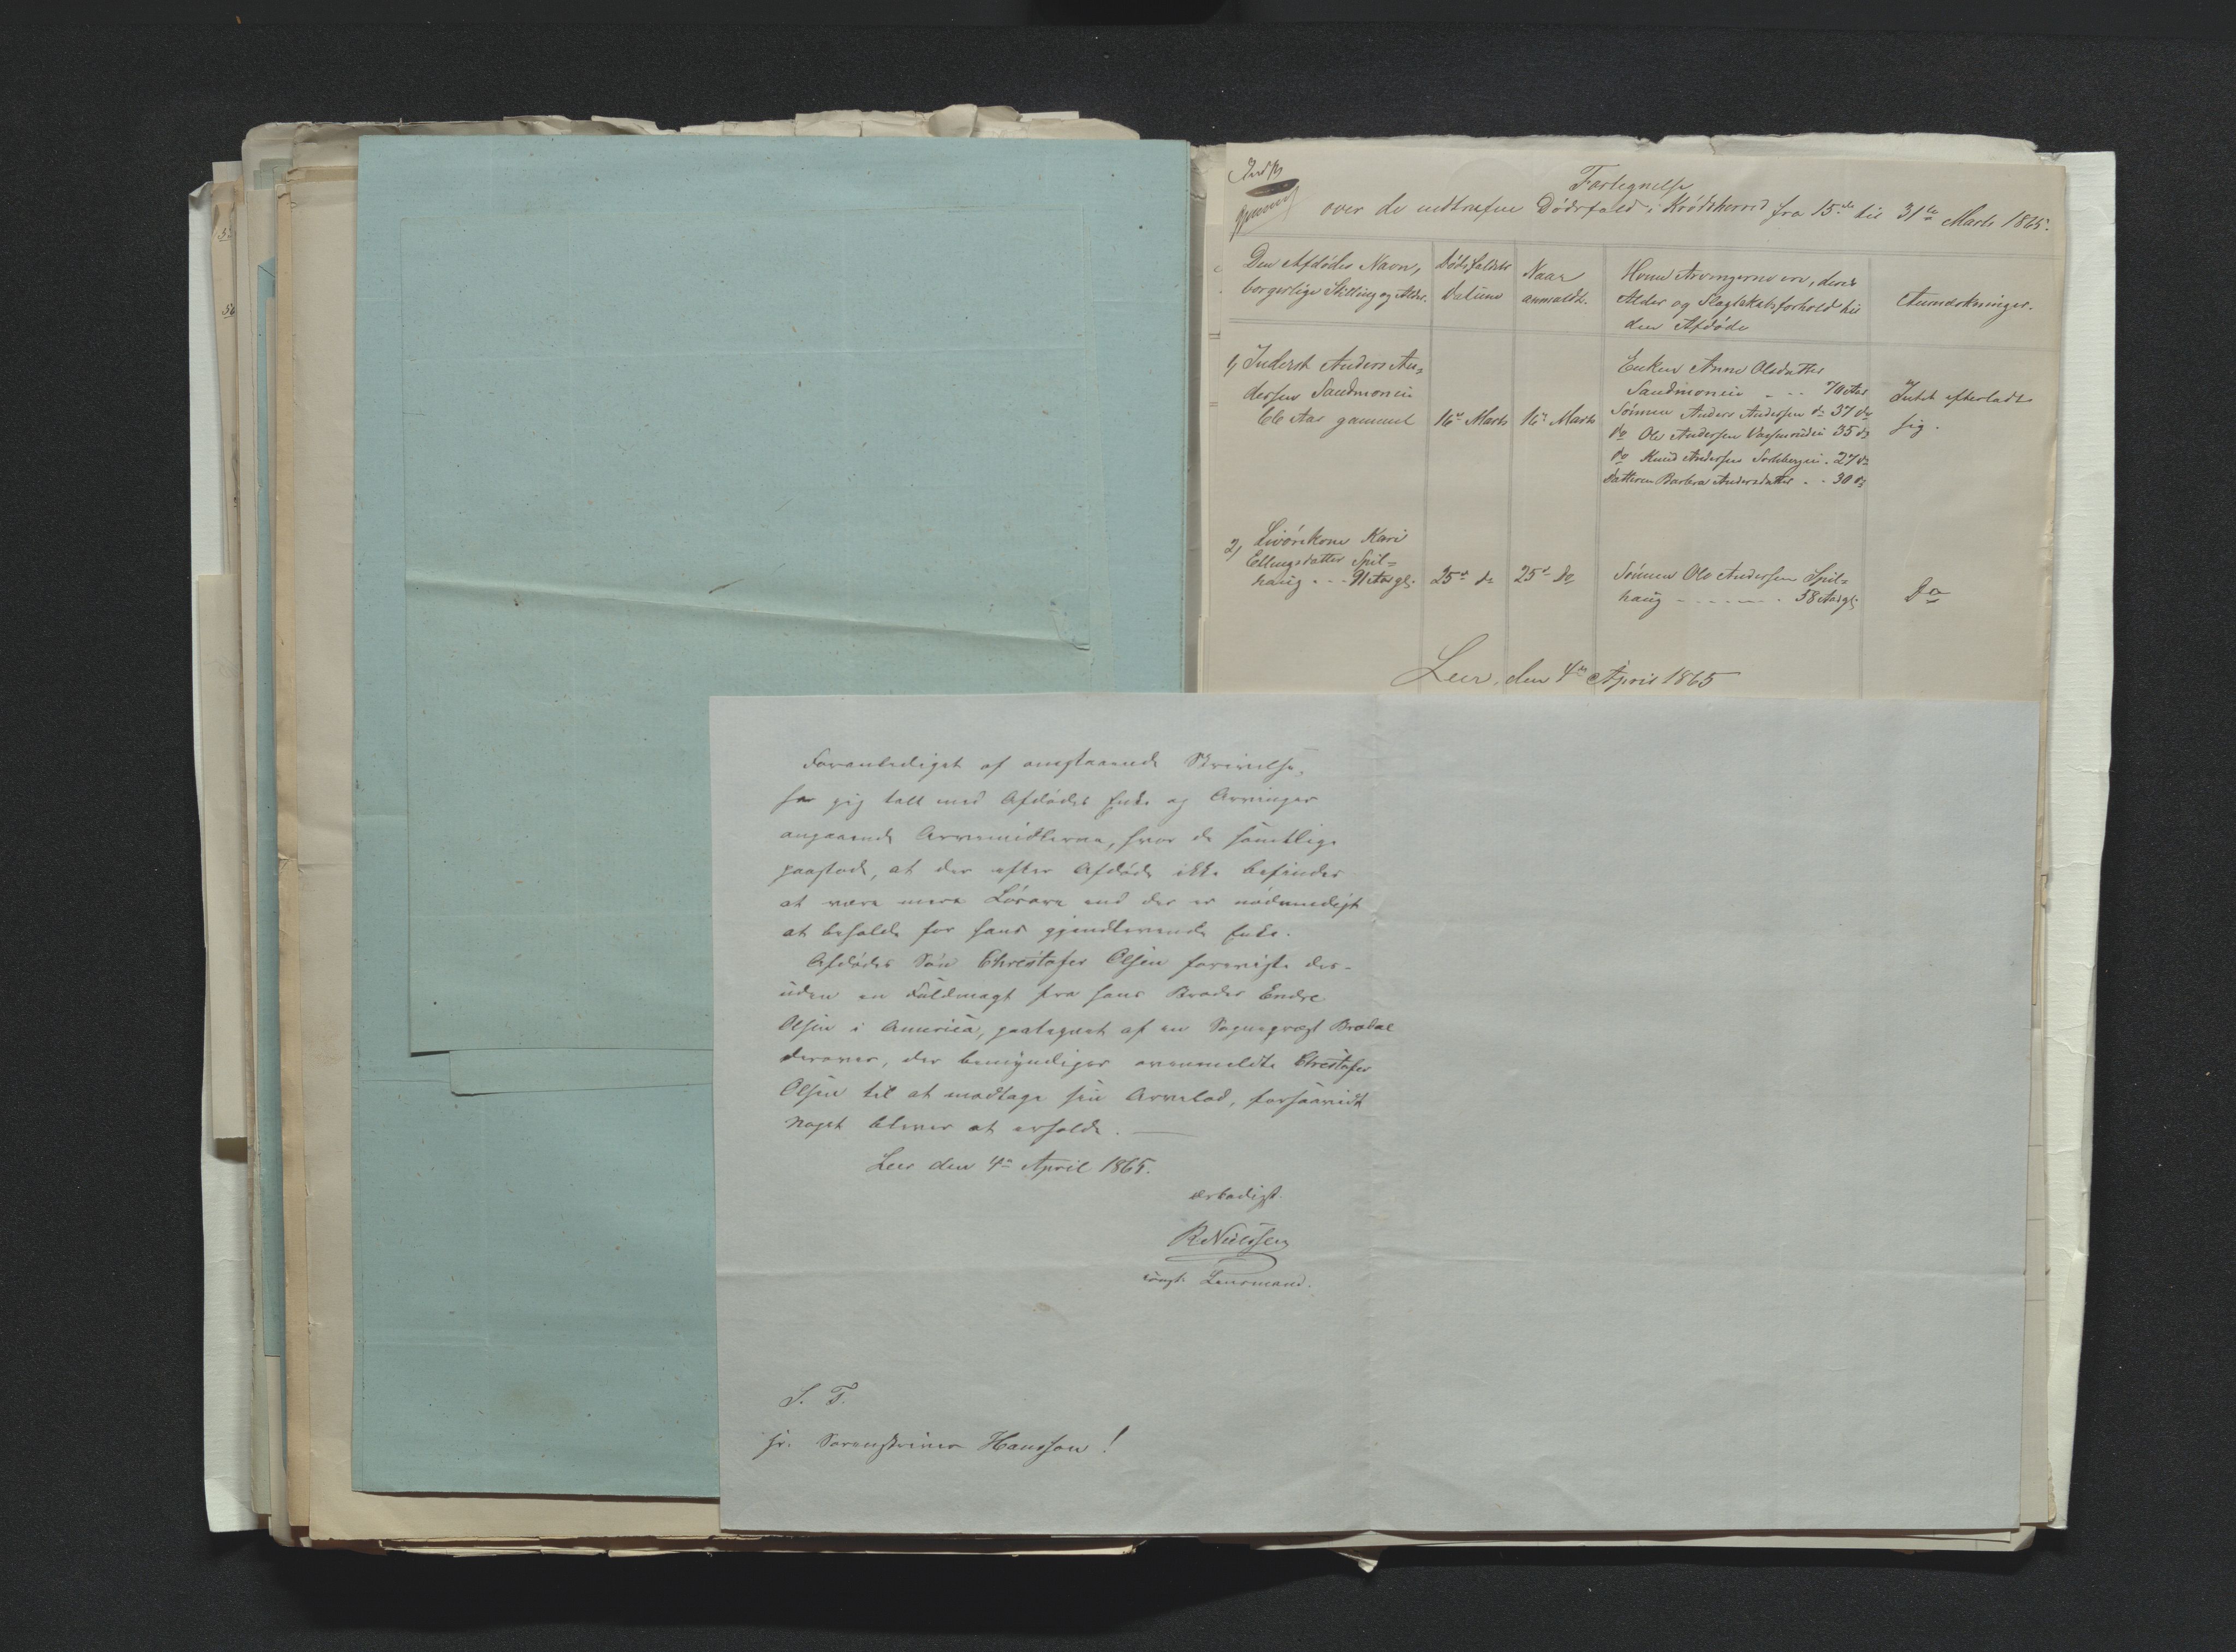 Fortegnelse
over de indtrufne Dødsfald i Krødsherred fra 15de til 31te Marts 1865.
Den Afdødes Navn,
borgerlige Stilling og Alder.
Dødsfaldets
Datum
Naar
anmeldt.
Hvem Arvingerne ere, deres
Alder og Slægtskabsforhold til
den Afdøde
Anmærkninger.
1, Inderst Anders An-
dersen Sandmoneie
66 Aar gammel
16de Marts
16de Marts
Enken Anne Olsdatter
Sandmoneie - .. 70 Aar
Sønnen Anders Andersen do 37 do
do Ole Andersen 35 do
do Knud Andersen . 27 do
Datteren Barbra Andersdatter . . 30 do
Intet efterladt
sig.
2, Livørekone Kari
Ellingsdatter Spil-
haug . . - 91 Aar gl.
25de do
25de do
Sønnen Ole Andersen Spil-
haug - - - - - 58 Aar gl.
Do
Leer, den 4de April 1865
Foranlediget af omstaaende Skrivelse,
har jeg talt med Afdødes Enke og Arvinger
angaaende Arvemidlerne, hvor de samtlige
paastod, at der efter Afdøde ikke befindes
at være mere Løsøre end der er nødvendigt
at beholde for hans gjenlevende Enke.
Afdødes Søn Chrestofer Olsen foreviste des-
uden en Fuldmagt fra hans Broder Endre
Olsen i America, paategnet af en Sogneprest Bredal
derover, der bemyndiger ovenmeldte Chrestofer
Olsen til at modtage sin Arvelod, forsaavidt
Noget bliver at erholde. —
Leer den 4de April 1865.
ærbødigst
R Nielsen
const. Lensmand.
S. T.
Hr. Sorenskriver Hansson!